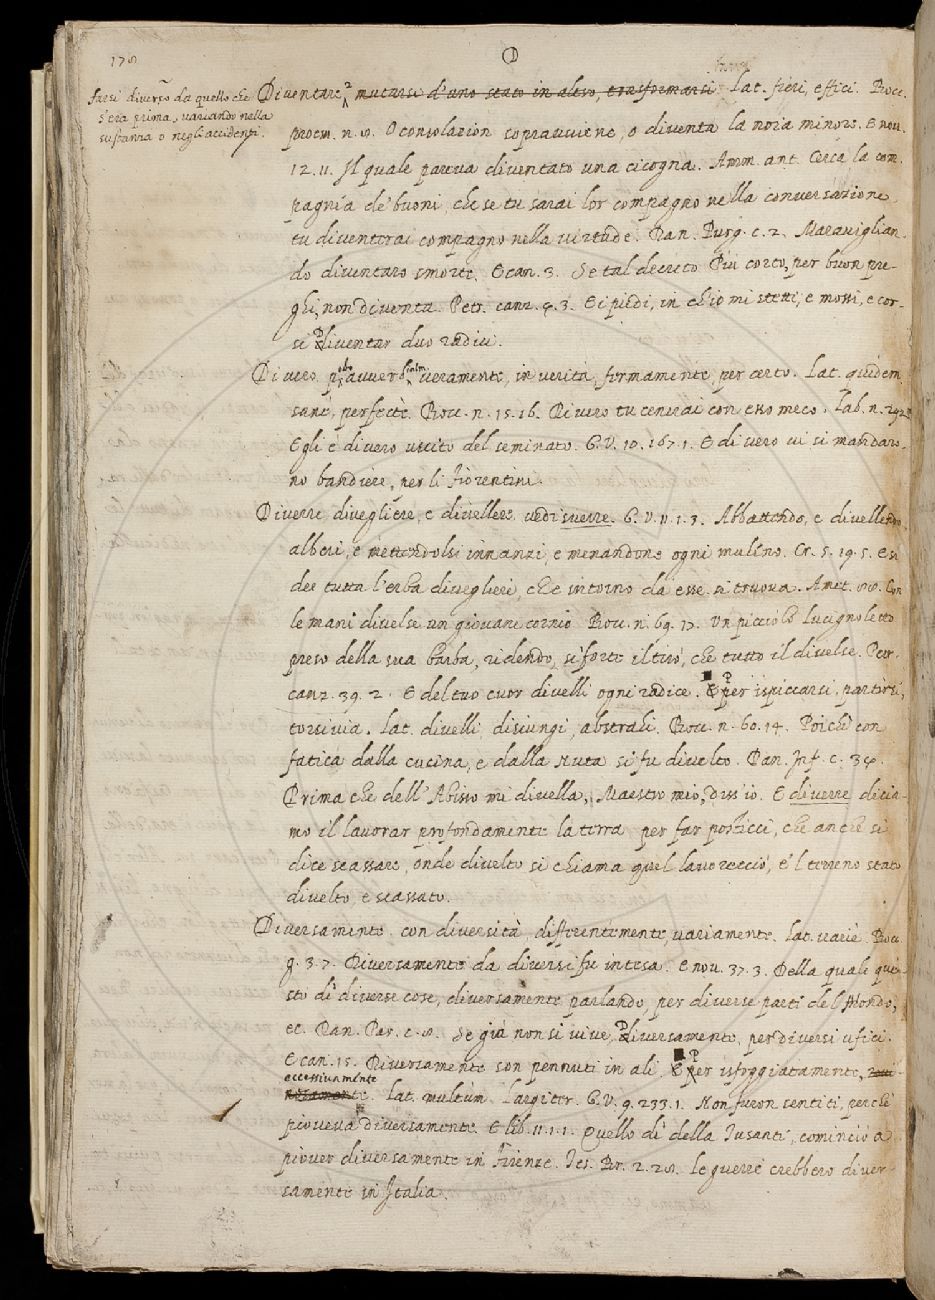 178
D
farsi diverso da quello che
s'era prima, variando nella
sustanza o negli accidenti.
Diventare, mutarsi d'uno stato in altro, trasformarsi. Lat. fieri, effici. Bocc.
proem. n. 8. O consolazion sopravviene, o diventa la noia minore. E nov.
12. 11. Il quale pareva diventato una cicogna. Amm. ant. Cerca la com-
pagnía de' buoni, che se tu sarai lor compagno nella conversazione
tu diventerai compagno nella virtude. Dan. Purg. c. 2. Maraviglian-
do diventaro smorte. E can. 3. Se tal decreto Più corto, per buon pre-
ghi, non diventa. Petr. canz. 4. 3. E i piedi, in ch'io mi stetti, e mossi, e cor-
si Diventar duo radici.
Di vero avverb. veramente, in verità, fermamente, per certo. Lat. quidem
sanè, perfectè. Bocc. n. 15. 16. Di vero tu cenerai con esso meco. Lab. n. 292
Egli è di vero uscito del seminato. G. V. 10. 167. 1. E di vero vi si mandaro-
no bandiere, per li Fiorentini.
Diverre divegliere, e divellere. vedi sverre. G. V. 11. 1. 3. Abbattendo, e divellendo
alberi, e mettendolsi innanzi, e menandone ogni mulino. Cr. 5. 19. 5. E si
dee tutta l'erba divegliere, che intorno da esse si truova. Amet. 88. Con
le mani divelse un giovane cornio. Bocc. n. 69. 17. Un piccolo lucignoletto
preso della sua barba, ridendo, sì forte il tirò, che tutto il divelse. Petr.
canz. 39. 2. E del tuo cuor divelli ogni radice. E per ispiccarsi, partirsi,
torsi via. Lat. divelli, disiungi, abstrahi. Bocc. n. 60. 14. Poichè con
fatica dalla cucina, e dalla Nuta si fu divelto. Dan. Inf. c. 34.
Prima che dell'Abisso mi divella, Maestro mio, diss'io. E diverre dicia-
mo il lavorar profondamente la terra per far posticci, che anche si
dice scassare, onde divelto si chiama quel lavoreccio, e 'l terreno stato
divelto, e scassato.
Diversamente. con diversità, differentemente, variamente. Lat. variè. Bocc.
g. 3. 7. Diversamente da diversi fu intesa. E nov. 37. 3. Della quale que-
sto dì diverse cose, diversamente parlando, per diverse parti del Mondo,
ec. Dan. Par. c. 8. Se giù non si vive, Diversamente, per diversi ufici.
E can. 15. Diversamente son pennuti in ali. E per isfoggiatamente,
eccessivamente
Lat. multùm. Largiter. G. V. 9. 233. 1. Non furon sentiti, perchè
pioveva diversamente. E lib. 11. 1. 1. Quello dì della Tusanti, cominciò a
piover diversamente in Firenze. Tes. Br. 2. 28. Le guerre crebbero diver-
samente in Italia.